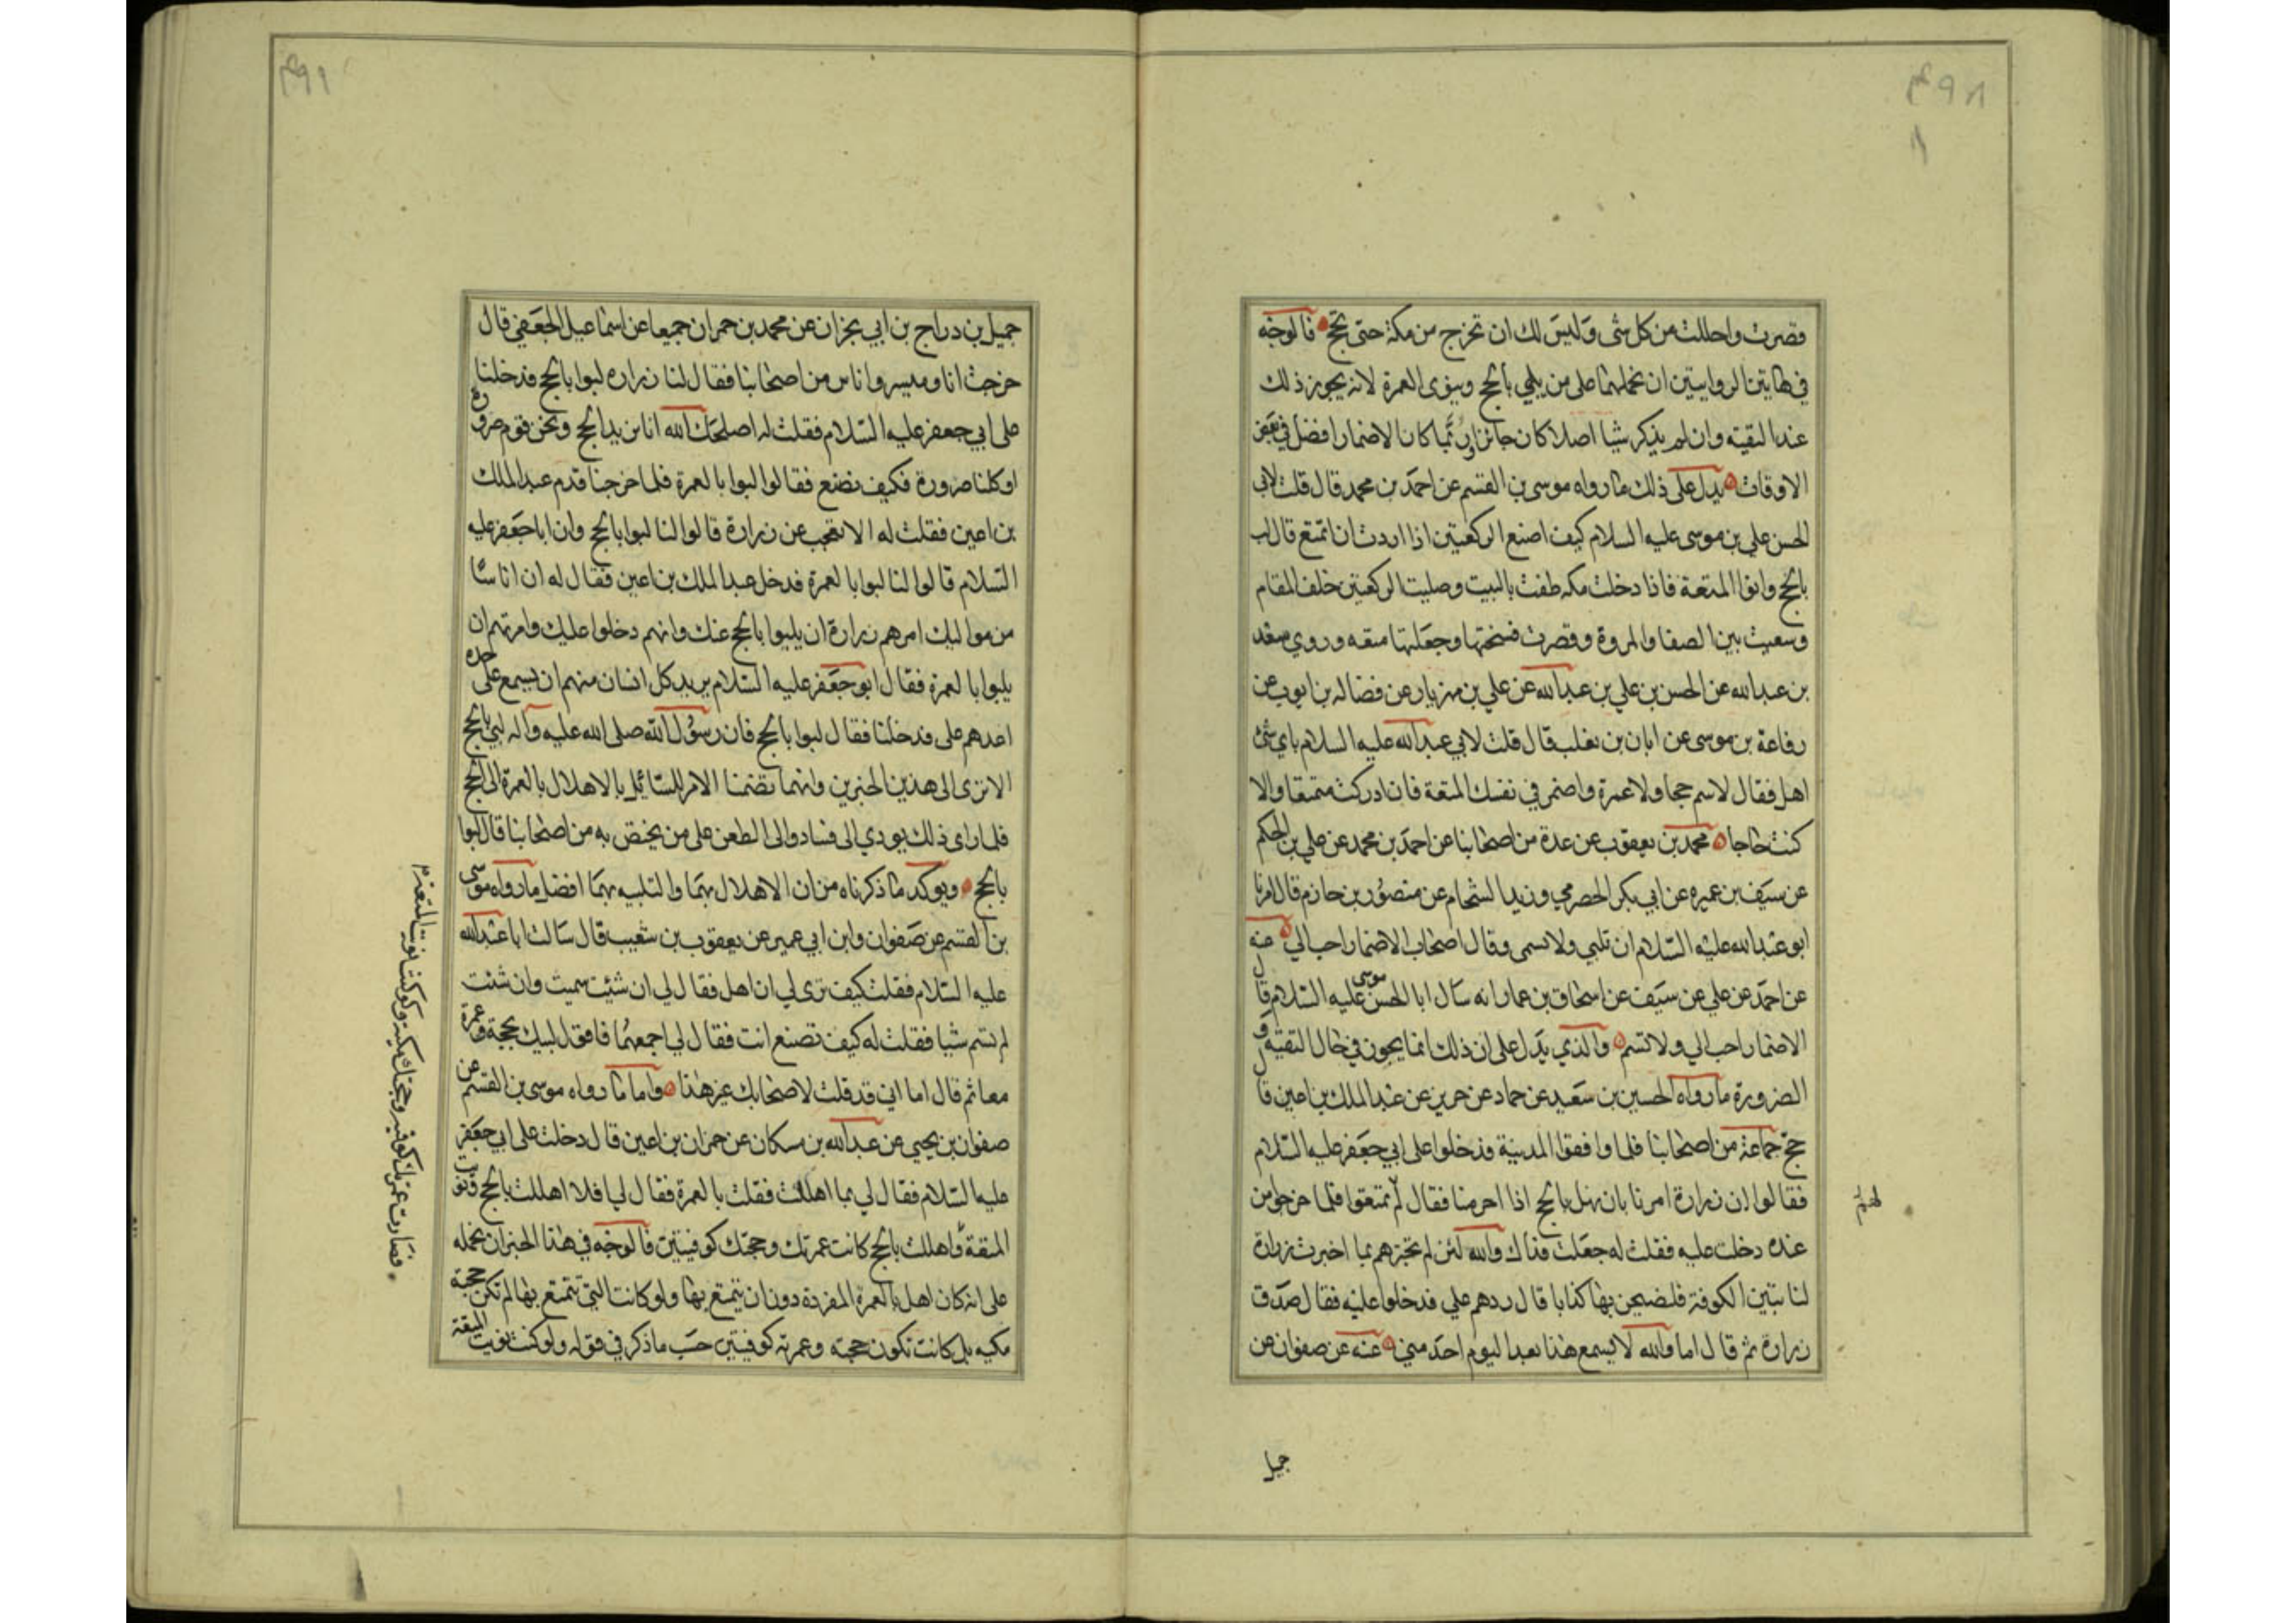 وقصرت واحللت من كل شى وليس لك ان تخرج من مكة حتى تحج فالوجه
في هاتين الروايتين ان نحملهما على من يلبي بالحج وينوى العمرة لانه يجوز ذلك
عند التقية وان لم يذكر شيا اصلا كان جائزا وربما كان الاضمار افضل في بعض
الاوقات يدل على ذلك ما رواه موسى بن القسم عن احمد بن محمد قال قلت لابي
الحسن علي بن موسى عليه السلام كيف اصنع الركعتين اذا اردت ان اتمتع قال لب
بالحج وانو المتعة فاذا دخلت مكه طفت بالبيت وصليت الركعتين خلف المقام
وسعيت بين الصفا والمروة وقصرت فنسختها وجعلتها متعه وروي سعد
بن عبد الله عن الحسن بن علي بن عبد الله عن علي بن مهزيار عن فضاله بن ايوب عن
رفاعة بن موسى عن ابان بن تغلب قال قلت لابي عبد الله عليه السلام باي شئ
اهل فقال لا تسم حجا ولا عمرة واضمر في نفسك المتعة فان ادركت متمتعا والا
كنت حاجا محمد بن يعقوب عن عدة من اصحابنا عن احمد بن محمد عن علي بن الحكم
عن سيف بن عميره عن ابي بكر الحضرمي وزيد الشحام عن منصور بن حازم قال امرنا
ابو عبد الله عليه السلام ان نلبي ولا نسمى وقال اصحاب الاضمار احب الي عنه
عن احمد عن علي عن سيف عن اسحاق بن عمار انه سال ابا الحسن موسى عليه السلام قال
الاضمار احب الي ولا تسم والذي يدل على ان ذلك انما يجوز في حال التقية و
الضرورة ما رواه الحسين بن سعيد عن حماد عن حريز عن عبد الملك بن اعين قال
حج جماعة من اصحابنا فلما وافقوا المدينة فدخلوا على ابي جعفر عليه السلام
فقالوا ان زرارة امرنا بان نهل بالحج اذا احرمنا فقال لهم تمتعوا فلما خرجوا من
عنده دخلت عليه فقلت له جعلت فداك والله لئن لم تخبرهم بما اخبرت زرارة
لناتين الكوفة فلنصبحن بها كذابا قال ردهم علي فدخلوا عليه فقال صدق
زرارة ثم قال اما والله لا يسمع هذا بعد اليوم احد مني عنه عن صفوان عن
جميل
جميل بن دراج بن ابي نجران عن محمد بن حمران جميعا عن اسماعيل الجعفي قال
خرجت انا وميسر واناس من اصحابنا فقال لنا زراره لبوا بالحج فدخلنا
على ابي جعفر عليه السلام فقلت له اصلحك الله انا نريد الحج ونحن قوم صرورة
او كلنا صرورة فكيف نصنع فقالوا لبوا بالعمرة فلما خرجنا قدم عبد الملك
بن اعين فقلت له الا تعجب عن زرارة قالوا لنا لبوا بالحج وان ابا جعفر عليه
السلام قالوا لنا لبوا بالعمرة فدخل عبد الملك بن اعين فقال له ان اناسا
من مواليك امرهم زرارة ان يلبوا بالحج عنك وانهم دخلوا عليك وامرتهم ان
يلبوا بالعمرة فقال ابو جعفر عليه السلام يريد كل انسان منهم ان يسمع على حده
اعدهم على فدخلنا فقال لبوا بالحج فان رسول الله صلى الله عليه وآله لبي بالحج
الا ترى الى هذين الخبرين وانهما تضمنا الامر للسائل بالاهلال بالعمرة الى الحج
فلما راى ذلك يودي الى فساد والى الطعن على من يختص به من اصحابنا قال لبوا
بالحج ويوكد ما ذكرناه من ان الاهلال بهما والتلبيه بهما افضل ما رواه موسى
بن القسم عن صفوان وابن ابي عمير عن يعقوب بن شعيب قال سالت ابا عبد الله
عليه السلام فقلت كيف ترى لي ان اهل فقال لي ان شئت سميت وان شئت
لم تسم شيا فقلت له كيف تصنع انت فقال لي اجمعهما فاقول لبيك بحجة وعمرة
معا ثم قال اما اني قد قلت لاصحابك غير هذا واما ما رواه موسى بن القسم عن
صفوان بن يحيي عن عبد الله بن مسكان عن حمران بن اعين قال دخلت على ابي جعفر
عليه السلام فقال لي بما اهللت فقلت بالعمرة فقال لي افلا اهللت بالحج ونويت
المتعة فاهللت بالحج كانت عمرتك وحجتك كوفيتين فالوجه في هذا الخبر ان نحمله
على انه كان اهل بالعمرة المفردة دون ان يتمتع بها ولو كانت التي يتمتع بها لم تكن حجته
مكيه بل كانت تكون حجته وعمرته كوفيتين حسب ما ذكر في قوله ولو كنت نويت المتعة
فصارت عمرتك كوفيه وحجتك مكية ولو كنت نويت المتعة